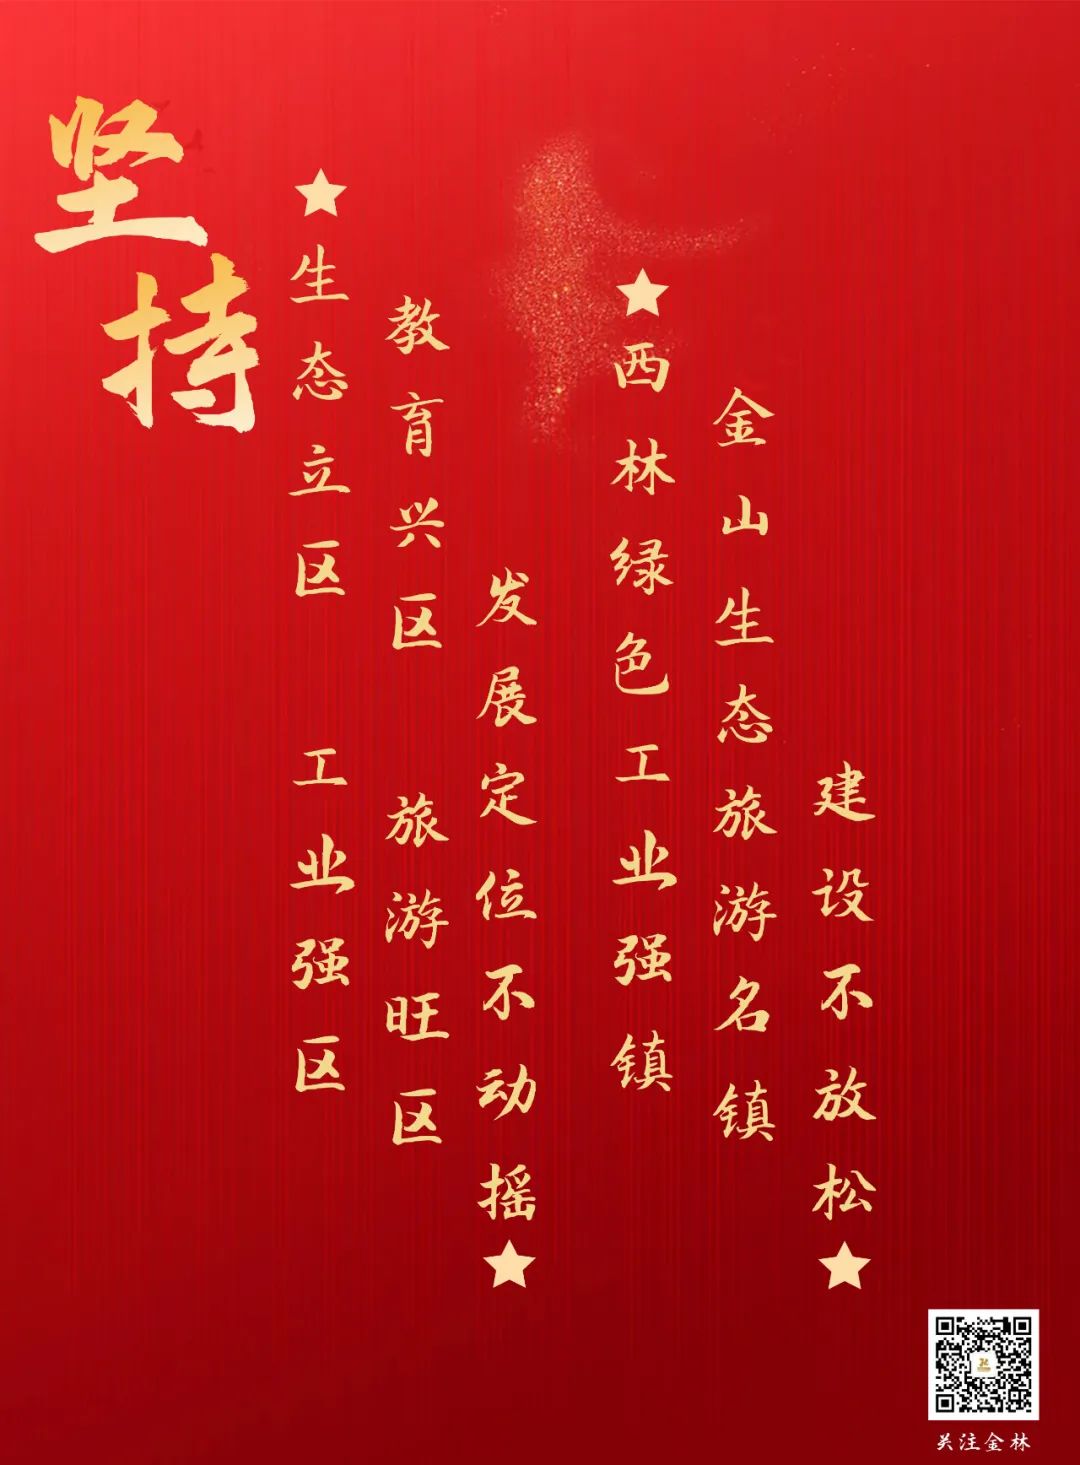 坚持
生态立区 工业强区
教育兴区 旅游旺区
发展定位不动摇
西林绿色工业强镇
金山生态旅游名镇
建设不放松
关注金林